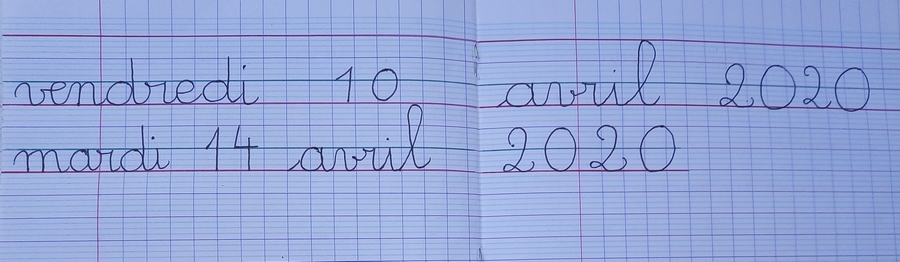 vendredi 10 avril 2020
mardi 14 avril 2020